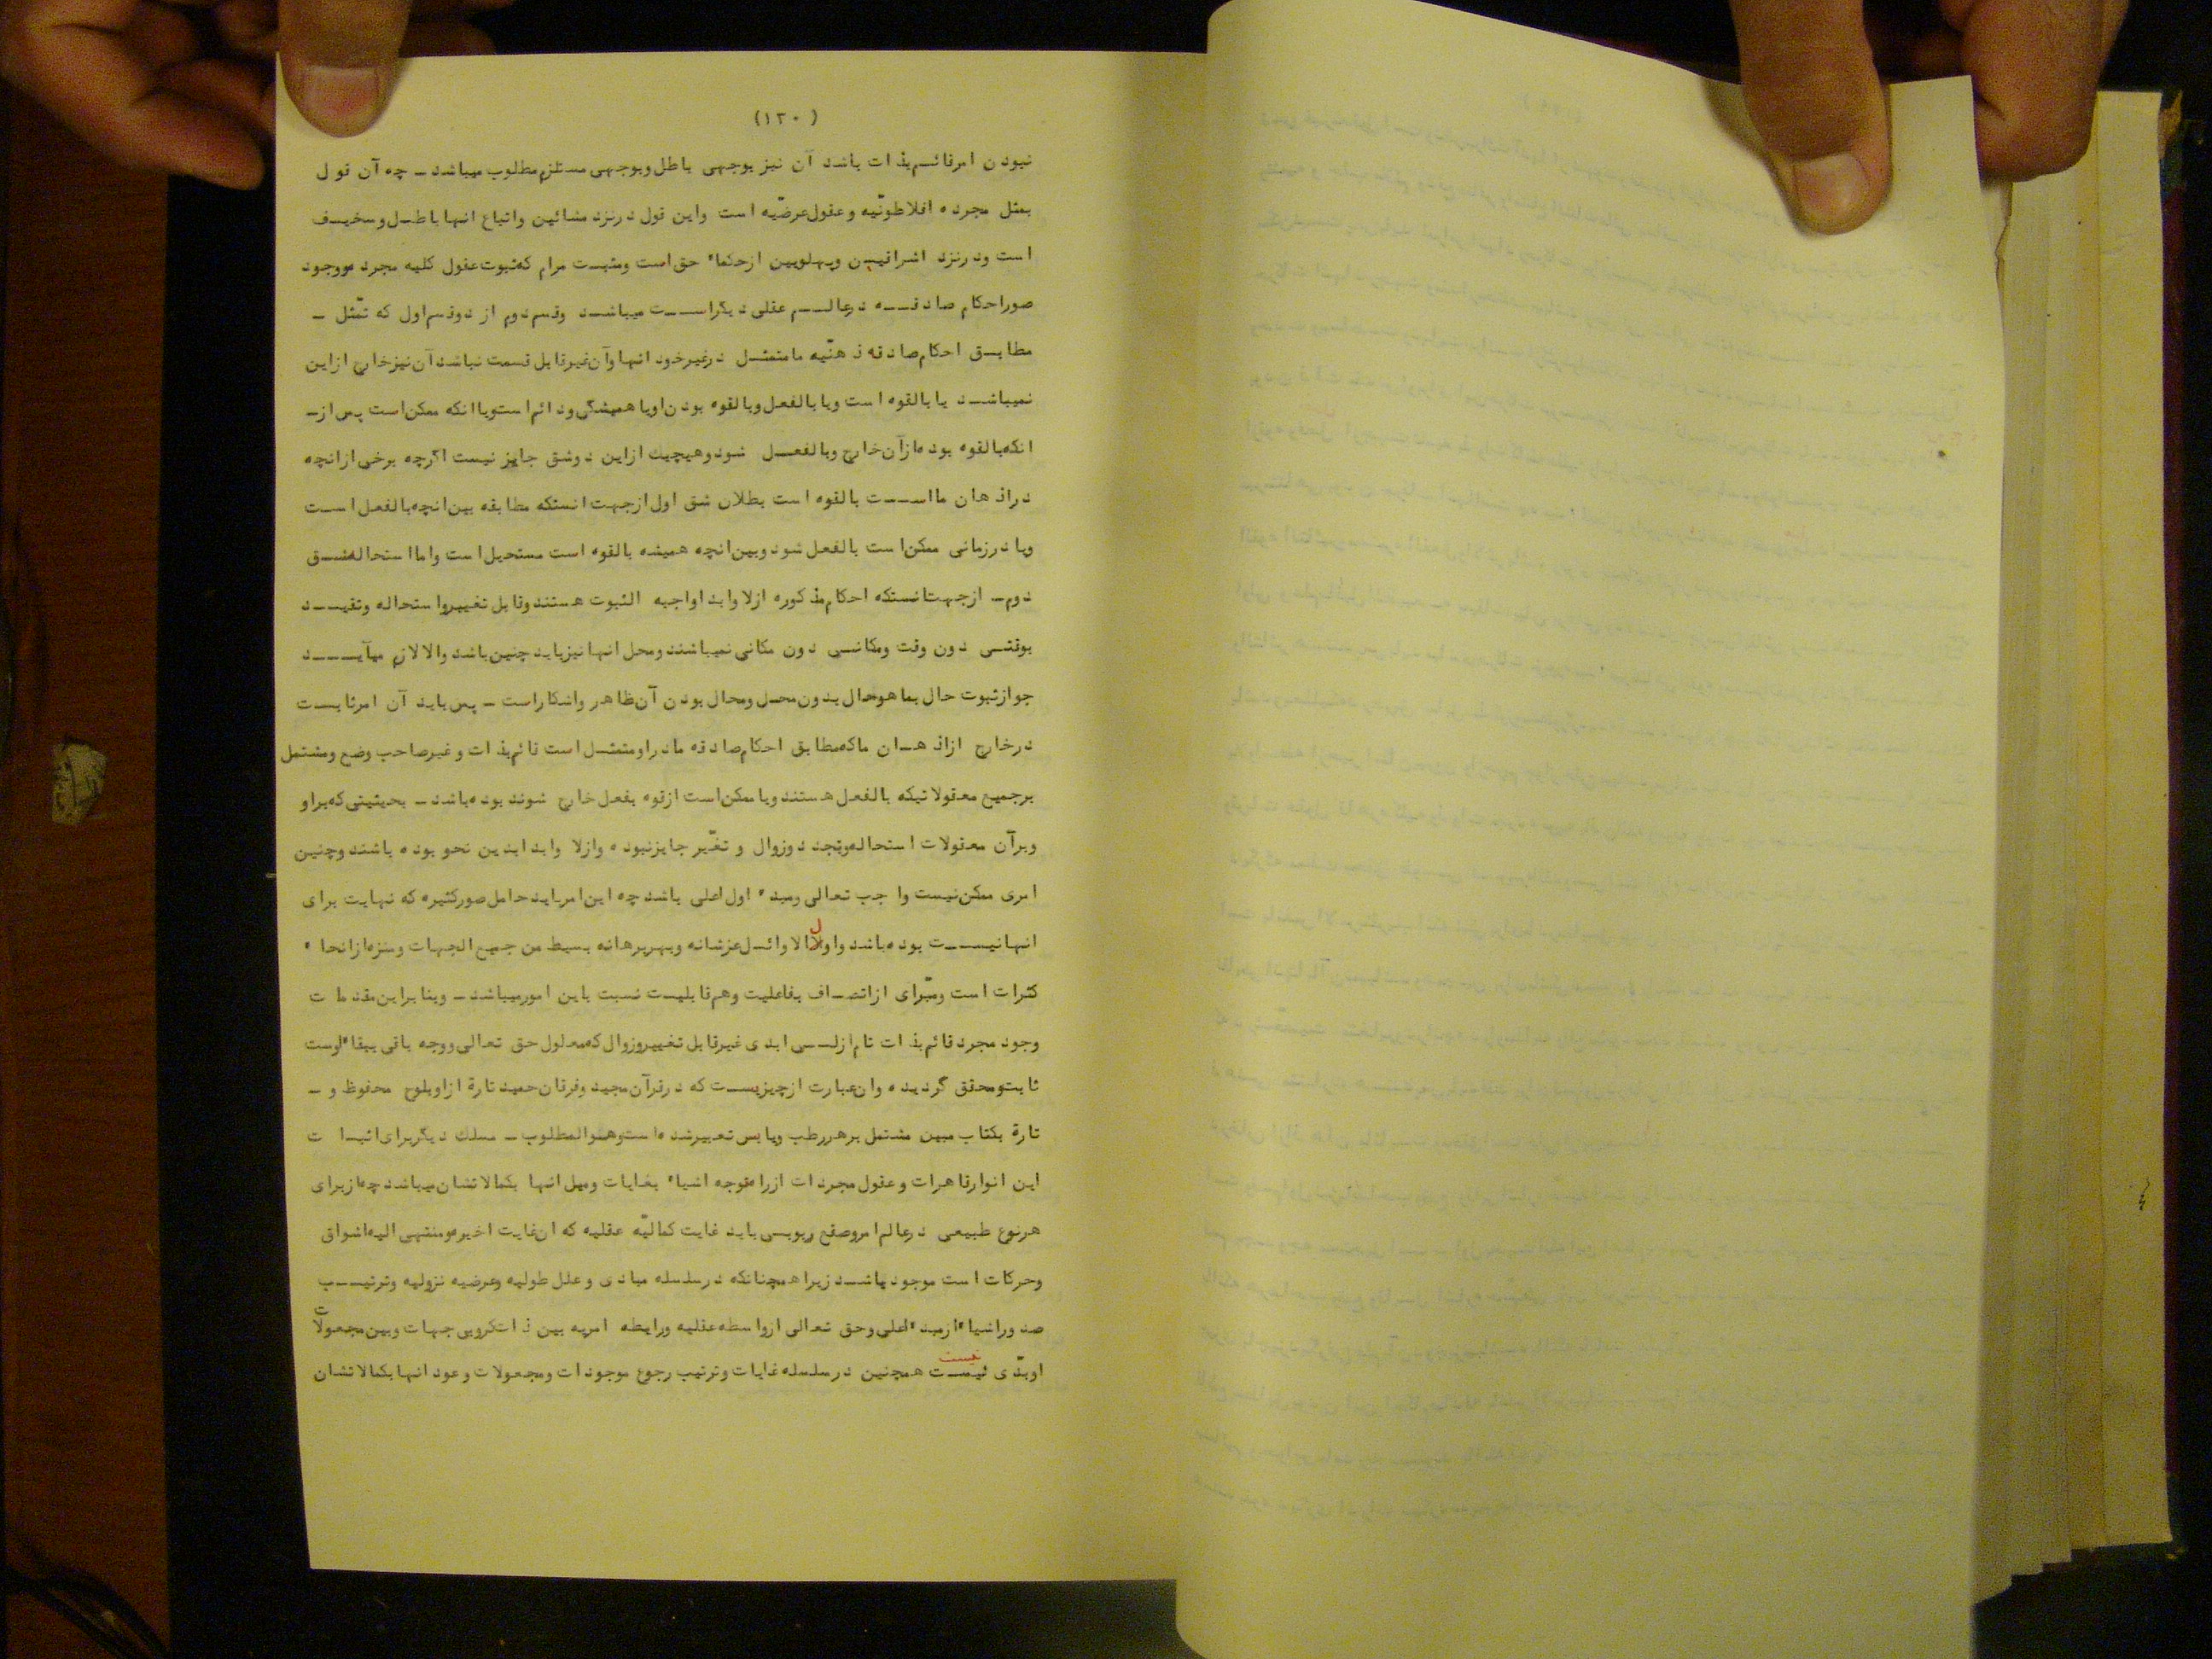 (۱۳۰)
نبودن امرقائم بذات باشد آن نیز بوجهی باطل وبوجهی مستلزم مطلوب میباشد ـ چه آن قول
بمثل مجرده افلاطونّیه وعقول عرضّیه است واین قول درنزد مشائین واتباع انها باطل وسخیف
است ودرنزد اشراقیین وپهلویین ازحکماء حق است ومثبت مرام که ثبوت عقول کلیه مجرد موجود
صوراحکام صادقه درعالم عقلی دیگراست میباشد وقسم دوم از دوقسم اول که تمّثل ـ
مطابق احکام صادقه ذهنّیه مامتمثل درغیرخود انها وآن غیرقابل قسمت نباشد آن نیزخارج ازاین
نمیباشد یا بالقوه است ویا بالفعل وبالقوه بودن اویا همیشگی ودائم است ویا انکه ممکن است پس از ـ
انکه بالقوه بوده ازآن خارج وبالفعل شود وهیچیک ازاین دوشق جایز نیست اگرچه برخی ازانچه
دراذهان مااست بالقوه است بطلان شق اول ازجهت انستکه مطابقه بین انچه بالفعل است
ویا درزمانی ممکن است بالفعل شود وبین انچه همیشه بالقوه است مستحیل است واما استحاله شق
دوم ـ ازجهت انستکه احکام مذکوره ازلا وابدا واجبه الثبوت هستند وقابل تغییر واستحاله وتقید
بوقتی دون وقت ومکانی دون مکانی نمیباشند ومحل انها نیزباید چنین باشد والا لازم میآید
جوازثبوت حال بما هوحال بدون محل ومحال بودن آن ظاهر واشکاراست ـ پس باید آن امرثابت
درخارج ازاذهان ماکه مطابق احکام صادقه مادراومتمثل است قائم بذات وغیرصاحب وضع ومشتمل
برجمیع معقولاتیکه بالفعل هستند ویا ممکن است ازقوه بفعل خارج شوند بوده باشد ـ بحیثیتی که براو
وبرآن معقولات استحاله وتجدد وزوال و تغّیر جایزنبوده وازلا وابدا بدین نحو بوده باشند وچنین
امری ممکن نیست واجب تعالی ومبدء اول اعلی باشد چه این امرباید حامل صورکثیره که نهایت برای
انها نیست بوده باشد واول الاوائل عزشانه وبهربرهانه بسیط من جمیع الجهات ومنزه ازانحاء
کثرات است ومبّرای ازاتصاف بفاعلیت وهم قابلیت نسبت باین امورمیباشد ـ وبنابراین مقدمات
وجود مجرد قائم بذات تام ازلی ابدی غیرقابل تغییروزوال که معلول حق تعالی ووجه باقی ببقاء اوست
ثابت ومحقق گردیده وان عبارت ازچیزیست که درقرآن مجید وفرقان حمید تارة ازاوبلوح محفوظ و ـ
تارة بکتاب مبین مشتمل برهررطب ویابس تعبیرشده است وهوالمطلوب ـ مسلک دیگربرای اثبات
این انوارقاهرات وعقول مجردات ازراه توجه اشیاء بغایات ومیل انها بکمالاتشان میباشد چه ازبرای
هرنوع طبیعی درعالم امروصقع ربوبی باید غایت کمالّیه عقلیه که ان غایت اخیره ومنتهی الیه اشواق
وحرکات است موجود باشد زیرا همچنانکه درسلسله مبادی وعلل طولیه وعرضیه نزولیه وترتیب
صدوراشیاء ازمبدء اعلی وحق تعالی ازواسطه عقلیه ورابطه امریه بین ذات کروبی جهات وبین مجعولات
اوبّدی نیست همچنین درسلسله غایات وترتیب رجوع موجودات ومجعولات وعود انها بکمالاتشان